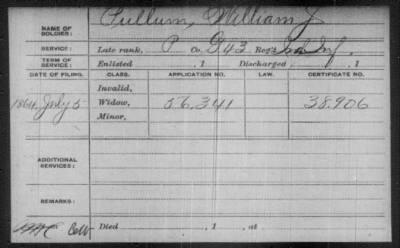 NAME OF SOLDIER: Pullum, William J
SERVICE: Late rank, P Co. G 43 Reg't Ind Inf.
TERM OF SERVICE: Enlisted , 1 Discharged , 1
DATE OF FILING. CLASS. APPLICATION NO. LAW. CERTIFICATE NO.
Invalid,
1864 July 5 Widow, 56,341 38,906
Minor,
ADDITIONAL SERVICES:
REMARKS:
Died , 1 , at